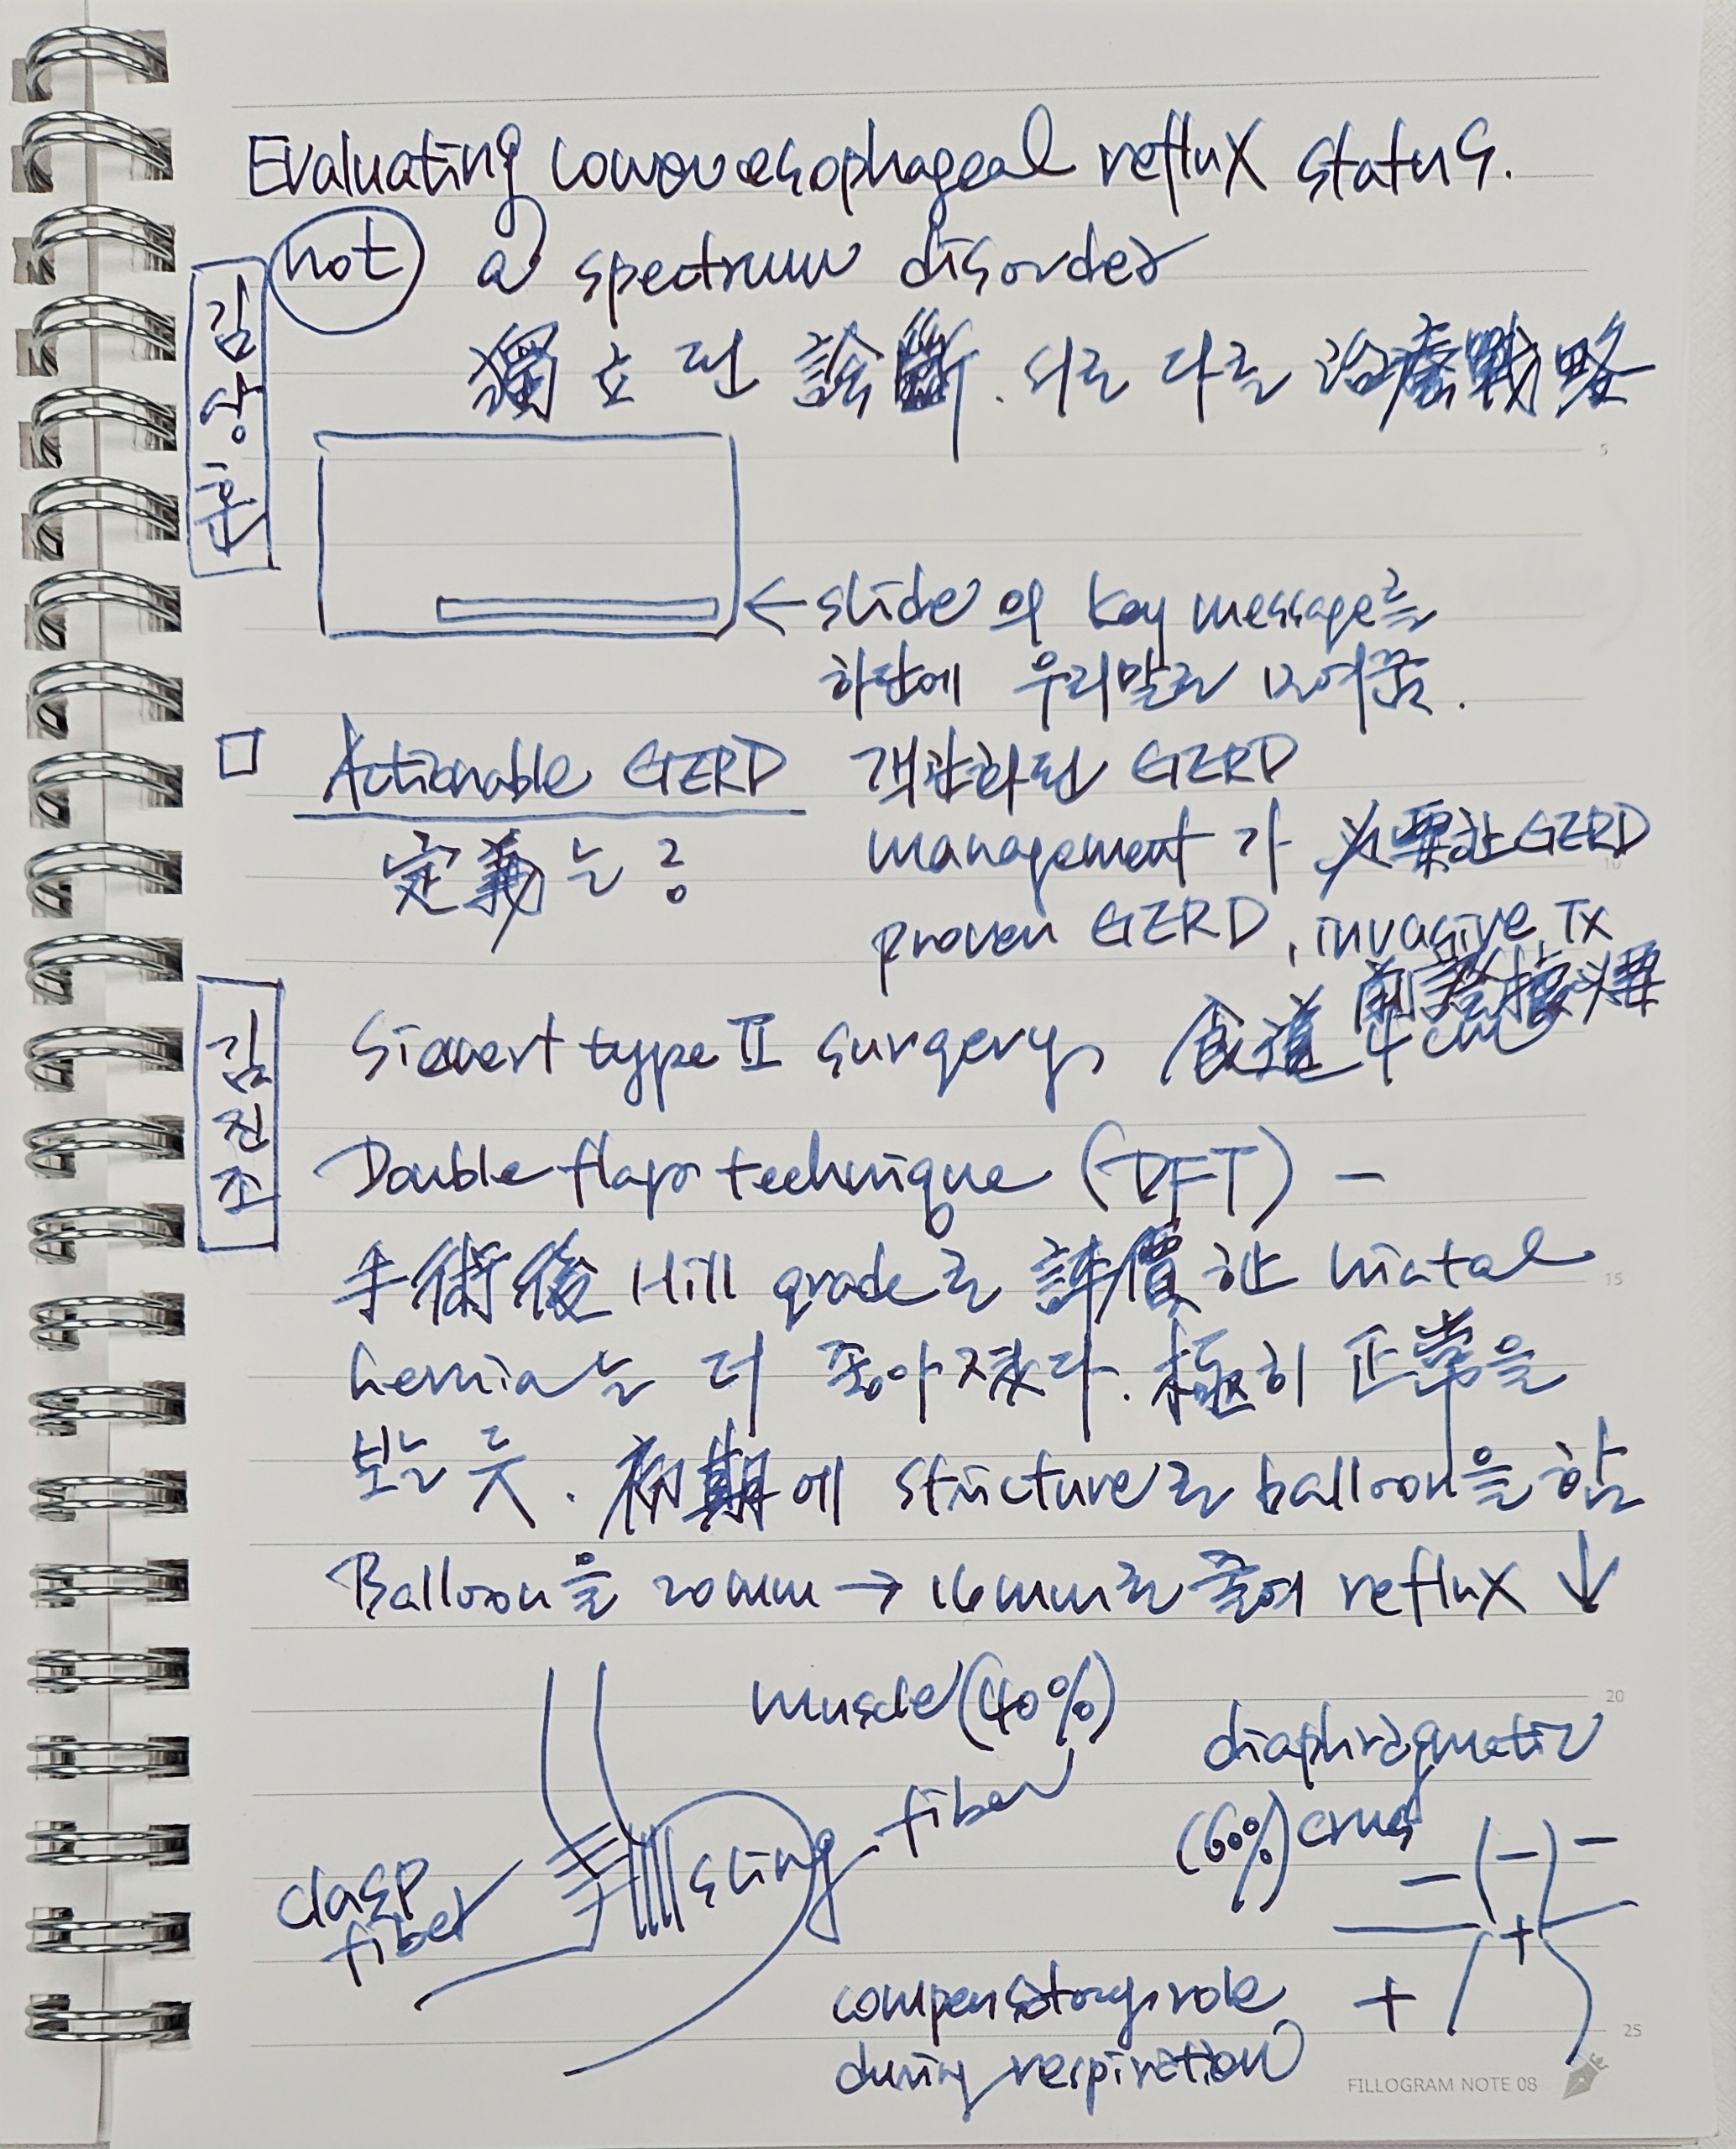 Evaluating lower esophageal reflux status.
not a spectrum disorder
김상훈
獨立된 診斷. 서로 다른 治療戰略
← slide의 key message를
하단에 우리말로 보여줌.
□ Actionable GERD 객관화된 GERD
定義는? management가 必要한 GERD
proven GERD, invasive Tx
前 證據 必要
김진조
Siewert type II surgery, 食道 4cm
Double flap technique (DFT) -
手術後 Hill grade로 評價한 hiatal
hernia는 더 좋아졌다. 極히 正常을
보는 듯. 初期에 stricture로 balloon을 함
Balloon을 20mm → 16mm로 줄여 reflux ↓
muscle (40%)
diaphragmatic
(60%) crus
clasp
fiber
sling fiber
- (-) -
+
+
compensatory role
during respiration
5
10
15
20
25
FILLOGRAM NOTE 08